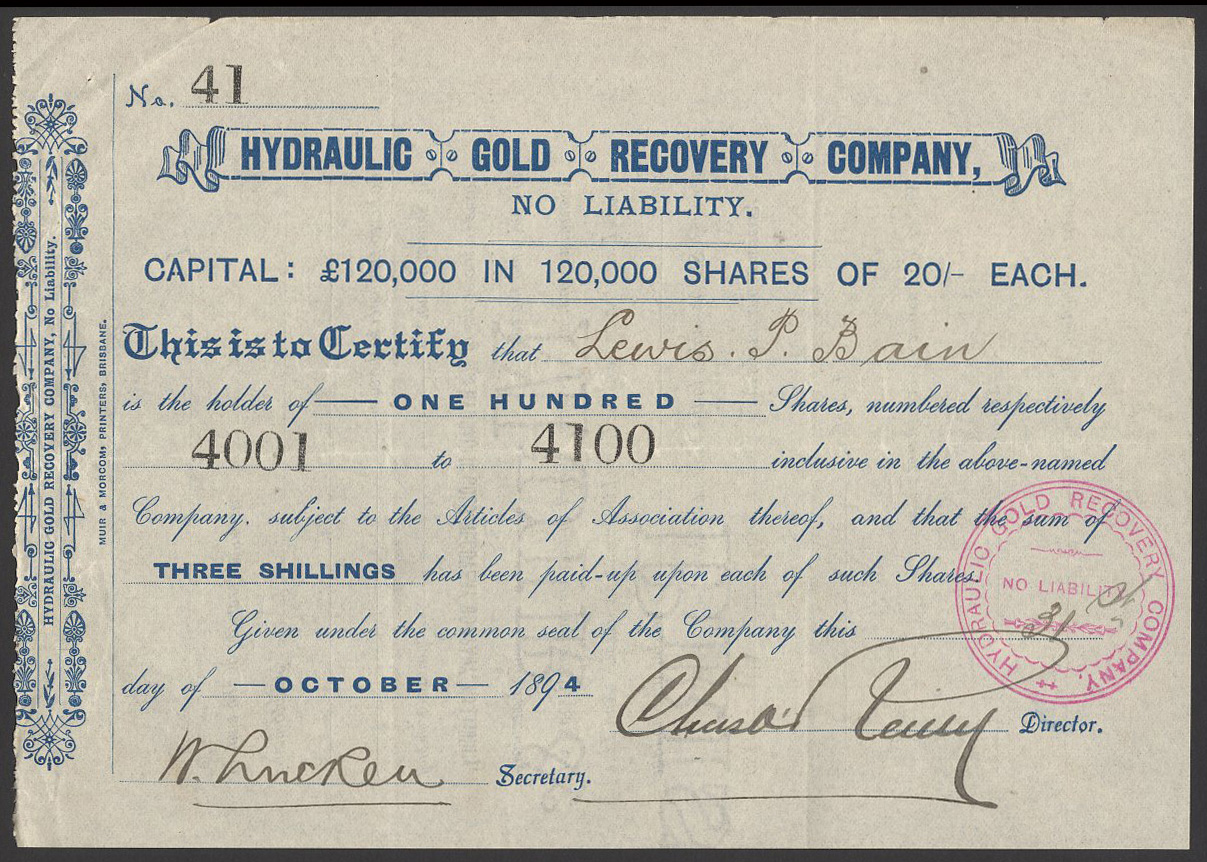 No. 41
HYDRAULIC GOLD RECOVERY COMPANY,
NO LIABILITY.
CAPITAL: £120,000 IN 120,000 SHARES OF 20/- EACH.
This is to Certify that Lewis. P. Bain
is the holder of — ONE HUNDRED — Shares, numbered respectively
4001 to 4100 inclusive in the above-named
Company. subject to the Articles of Association thereof, and that the sum of
THREE SHILLINGS has been paid-up upon each of such Shares.
Given under the common seal of the Company this 31st
day of — OCTOBER — 1894
Director.
Secretary.
HYDRAULIC GOLD RECOVERY COMPANY, No Liability.
MUIR & MORCOM, PRINTERS, BRISBANE.
HYDRAULIC GOLD RECOVERY COMPANY,
NO LIABILITY